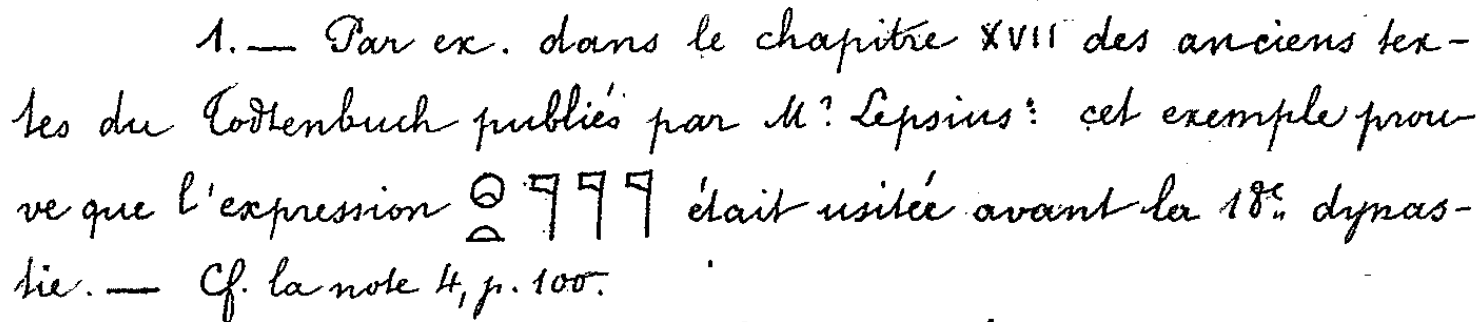 1. — Par ex. dans le chapitre XVII des anciens tex-
tes du Todtenbuch publiés par Mʳ Lepsius : cet exemple prou-
ve que l'expression 𓇹𓏏𓊹𓊹𓊹 était usitée avant la 18ᵉ dynas-
tie. — Cf. la note 4, p. 100.